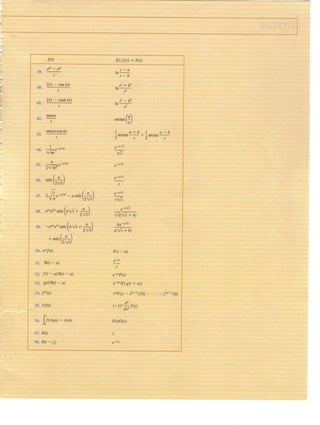 f(t) ℒ{f(t)} = F(s)
39. (e^{bt} − e^{at})/t ln (s − a)/(s − b)
40. 2(1 − cos kt)/t ln (s² + k²)/s²
41. 2(1 − cosh kt)/t ln (s² − k²)/s²
42. sen at/t arctan(a/s)
43. sen at cos bt/t ½ arctan (a + b)/s + ½ arctan (a − b)/s
44. (1/√πt) e^{−a²/4t} e^{−a√s}/√s
45. (a/2√πt³) e^{−a²/4t} e^{−a√s}
46. erfc(a/2√t) e^{−a√s}/s
47. 2√(t/π) e^{−a²/4t} − a erfc(a/2√t) e^{−a√s}/s√s
48. e^{ab}e^{b²t} erfc(b√t + a/2√t) e^{−a√s}/√s(√s + b)
49. −e^{ab}e^{b²t} erfc(b√t + a/2√t) be^{−a√s}/s(√s + b)
+ erfc(a/2√t)
50. e^{at}f(t) F(s − a)
51. 𝒰(t − a) e^{−as}/s
52. f(t − a)𝒰(t − a) e^{−as}F(s)
53. g(t)𝒰(t − a) e^{−as}ℒ{g(t + a)}
54. f^{(n)}(t) s^nF(s) − s^{(n−1)}f(0) − · · · − f^{(n−1)}(0)
55. t^nf(t) (−1)^n d^n/ds^n F(s)
56. ∫₀^t f(τ)g(t − τ)dτ F(s)G(s)
57. δ(t) 1
58. δ(t − t₀) e^{−st₀}